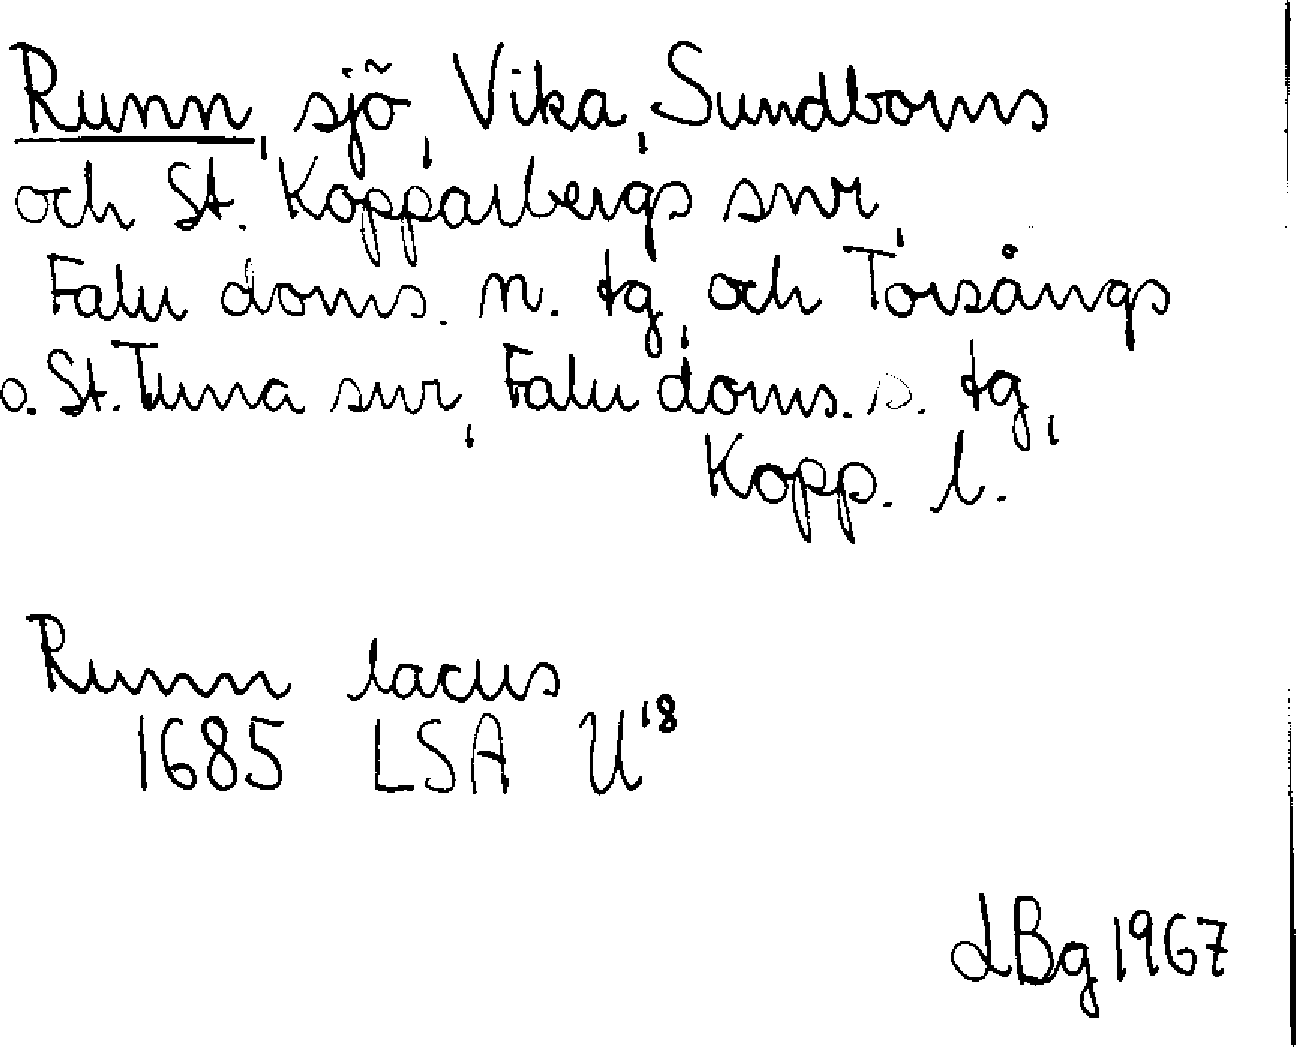 Runn, sjö, Vika, Sundborns
och St. Kopparbergs snr,
Falu doms. n. tg, och Torsångs
o. St. Tuna snr, Falu doms. s. tg,
Kopp. l.
Runn lacus
1685 LSA U18
LBg 1967